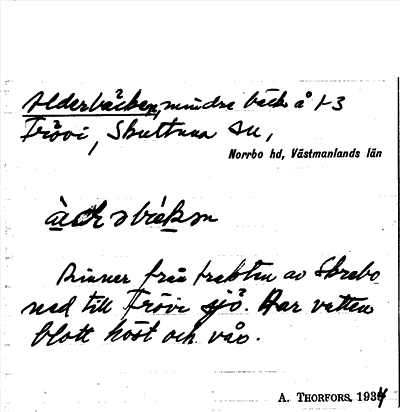 Alderbäcken, mindre bäck å 1-3
Frövi, Skultuna sn,
Norrbo hd, Västmanlands län
Rinner från trakten av Skrebo
ned till Frövi sjö. Har vatten
blott höst och vår.
A. THORFORS, 1934